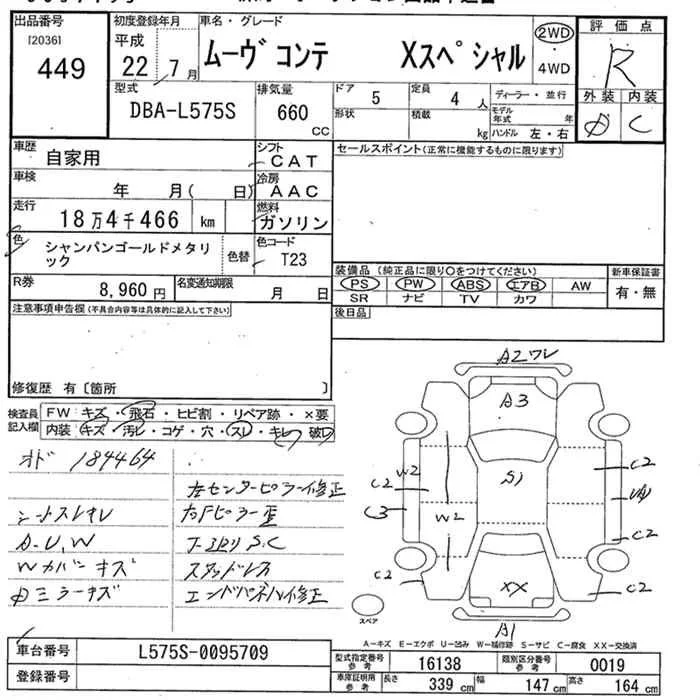 出品番号
[2036]
449
初度登録年月
平成
22年 7月
車名・グレード
ムーヴ コンテ Xスペシャル
2WD
4WD
評価点
R
外装 内装
C
型式
DBA-L575S
排気量
660 CC
ドア 5
形状
定員 4 人
積載 kg
ディーラー・並行
モデル年式 年
ハンドル 左・右
車歴 自家用
シフト CAT
車検 年 月( 日)
冷房 AAC
走行 18万4千466 km
燃料 ガソリン
色 シャンパンゴールドメタリック
色替
色コード T23
R券 8,960円
名変通知期限 月 日
セールスポイント(正常に機能するものに限ります)
装備品 (純正品に限り○をつけてください)
新車保証書
PS PW ABS エアB AW
有・無
SR ナビ TV カワ
後日品
注意事項申告欄(不具合内容等は具体的に記入して下さい)
修復歴 有〔箇所 〕
検査員記入欄
FW キズ・飛石・ヒビ割・リペア跡・×要
内装 キズ・汚レ・コゲ・穴・スレ・キレ・破レ
オド 184464
左センターピラー修正
シートスレ
右Fピラー歪
A・U,W
S,C
Wカバーキズ
スタッドレス
ミラーキズ
エンドパネル修正
A2 ワレ
A3
S1
W2
C2
C3
W2
C2
C2
C2
C2
XX
A1
スペア
A-キズ E-エクボ U-凹み W-補修跡 S-サビ C-腐食 XX-交換済
車台番号 L575S-0095709
登録番号
型式指定番号参考 16138
類別区分番号参考 0019
車庫証明用参考 長さ 339 cm 幅 147 cm 高さ 164 cm